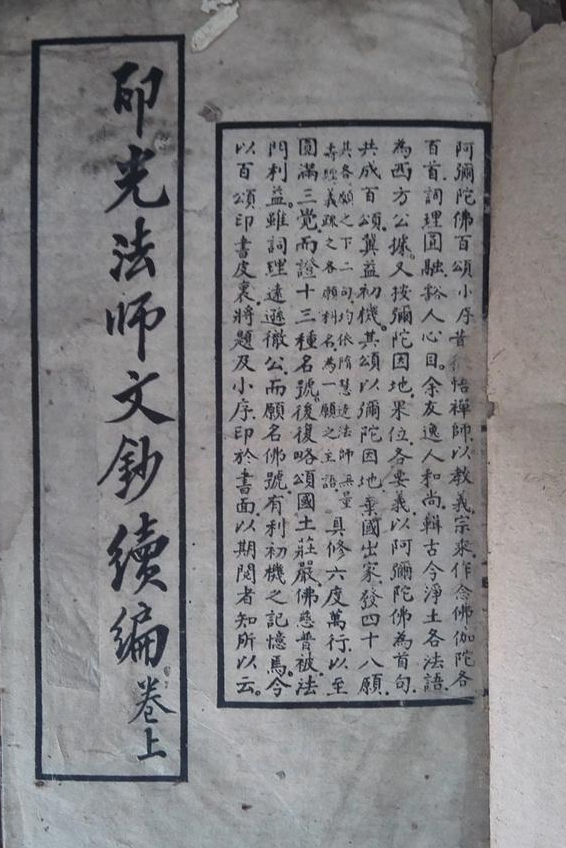 阿彌陀佛百頌小序昔徹悟禪師以教義宗乘作念佛伽陀各
百首詞理圓融豁人心目。余友逸人和尚輯古今淨土各法語
為西方公據。又按彌陀因地果位各要義以阿彌陀佛為首句
共成百頌冀益初機。其頌以彌陀因地棄國出家發四十八願
其各願之下二句均依隋慧遠法師無量
壽經義疏之各願料名為一願之主語
具修六度萬行以至
圓滿三覺而證十三種名號。後復略頌國土莊嚴佛慈普被法
門利益。雖詞理遠遜徹公而願名佛號有利初機之記憶焉。今
以百頌印書皮裏將題及小序印於書面以期閱者知所以云。
印光法師文鈔續編卷上